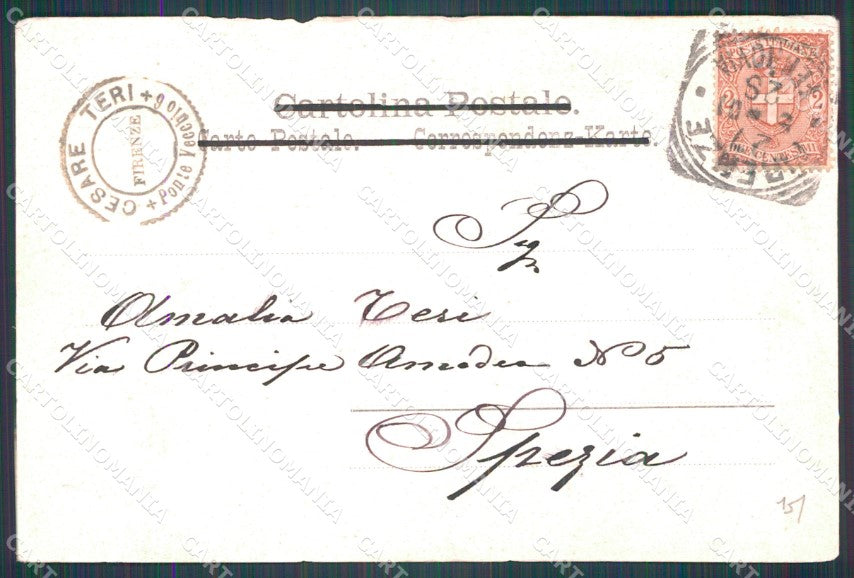 CESARE TERI
+ Ponte Vecchio 6 +
FIRENZE
Cartolina Postale.
Carte Postale. Correspondenz-Karte.
2 2
FIRENZE
Sig.
Amalia Teri
Via Principe Amedeo N° 5
Spezia
15/
CARTOLINOMANIA